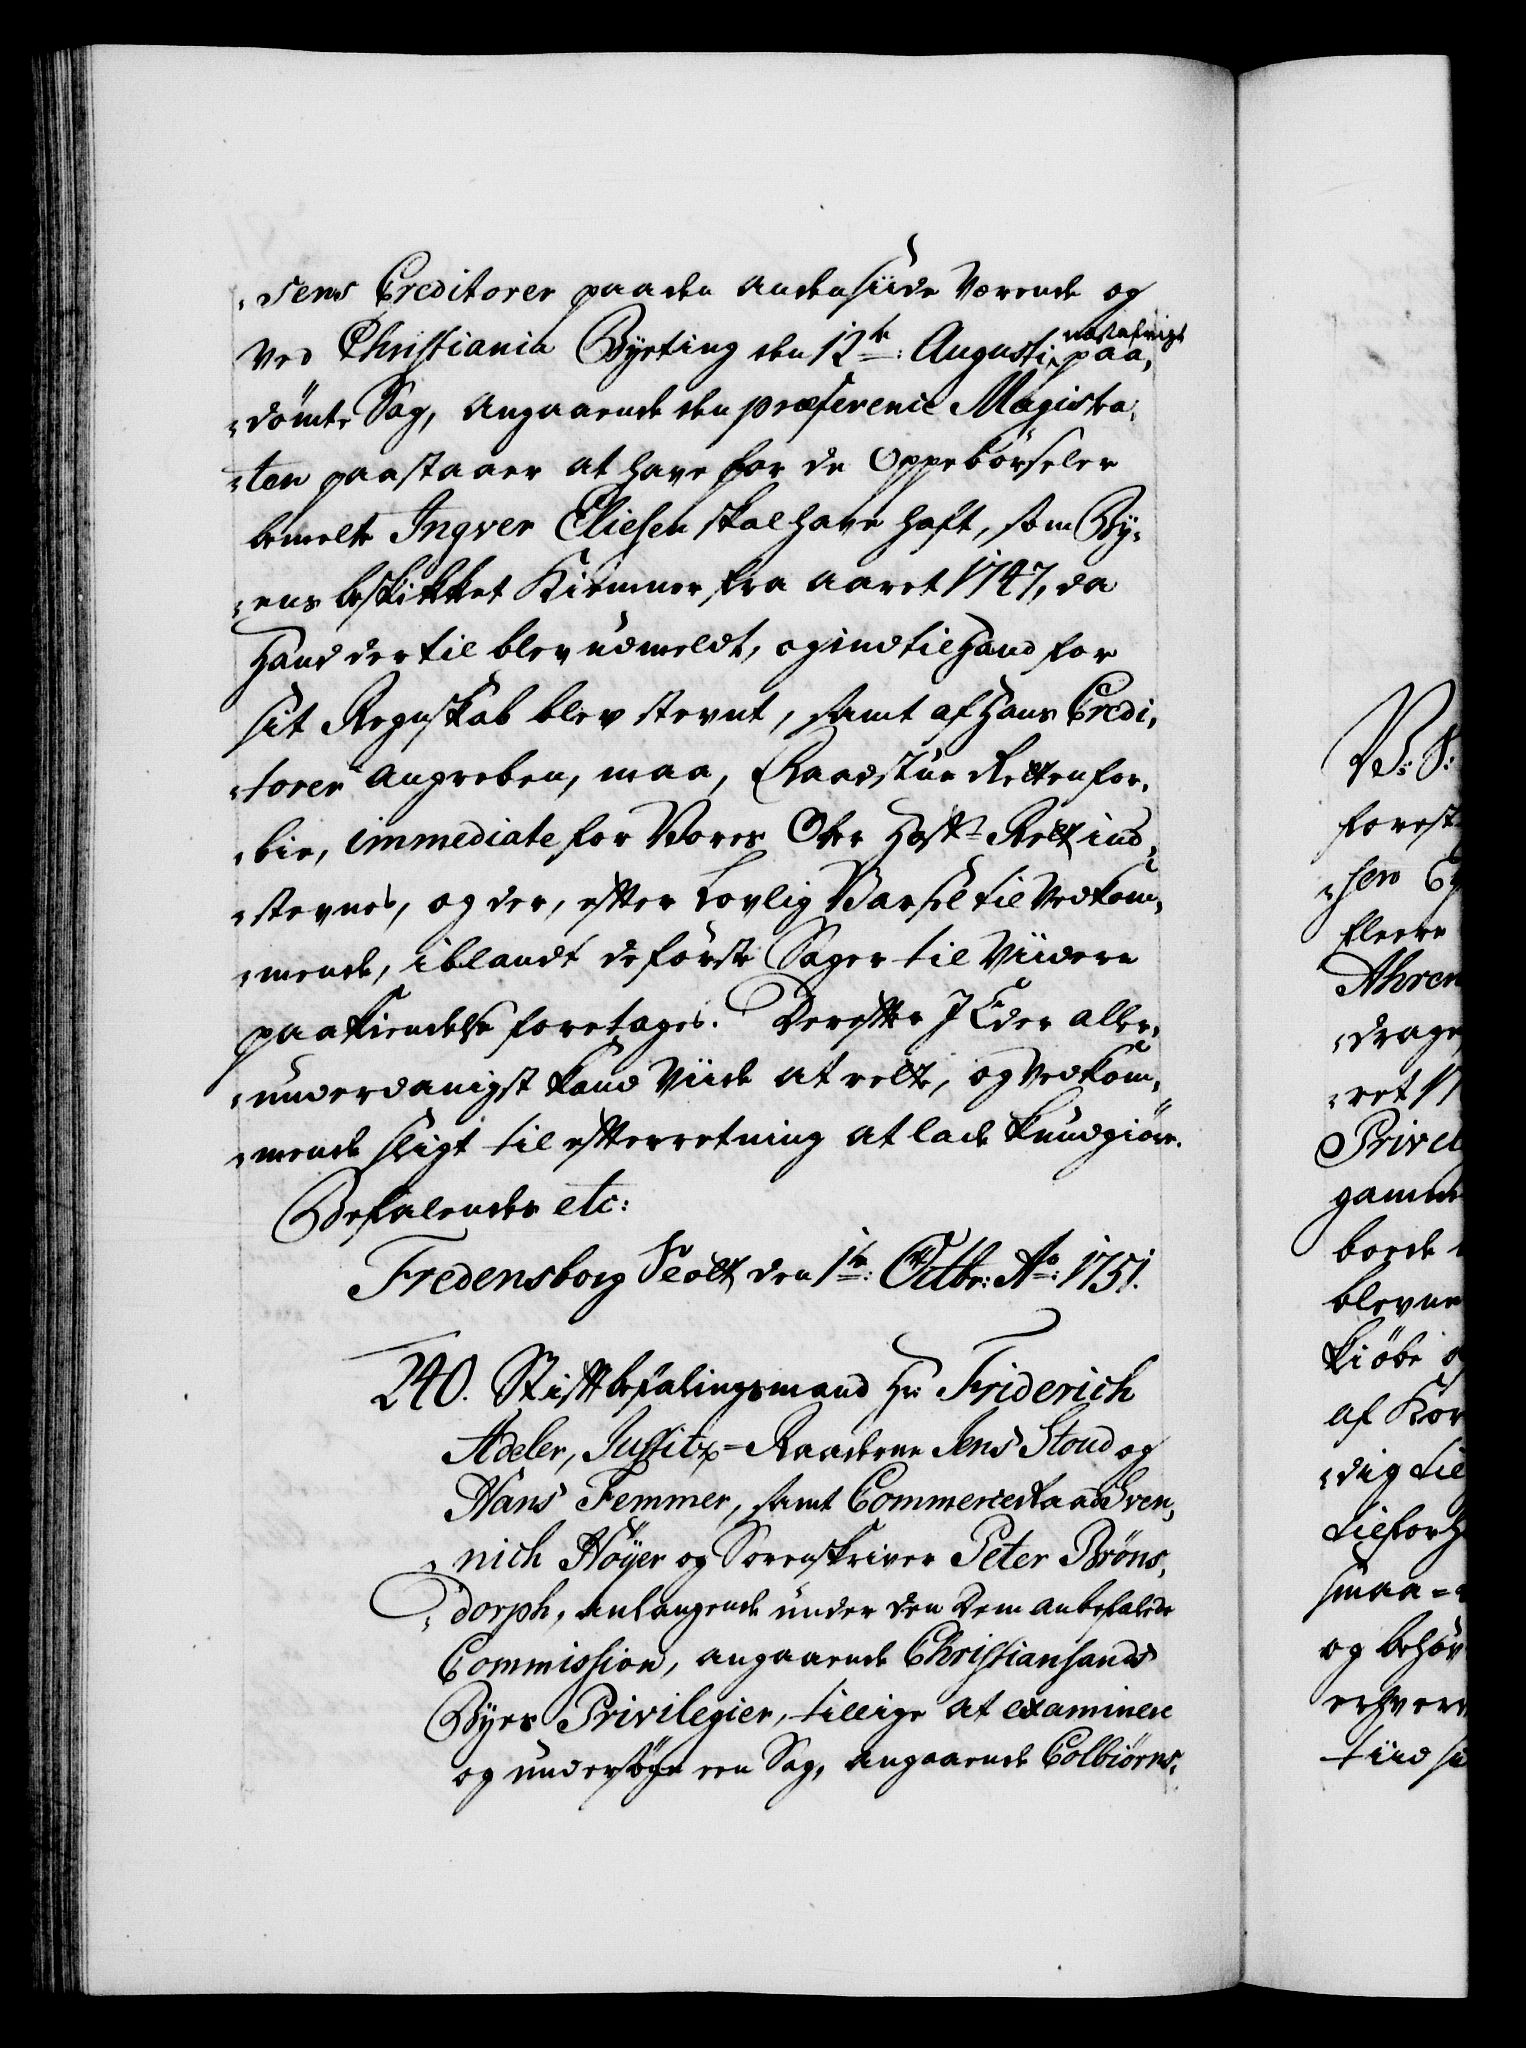 sens Creditorer paa den anden siide værende og
ved Christiania Byeting den 12te: Augusti næstafvigt paa„
„dömte Sag, angaaende den præference Magistra„
„ten paastaaer at have for de Oppebörseler
bemelte Ingver Eliesen skal have haft, som By„
„ens beskikket Kiemner fra aaret 1747, da
Hand dertil blev udmeldt, og indtil Hand for
sit Regnskab blev stevnt, samt af Hans Credi„
„torer angreben, maa, Raadstue Retten for„
„bie, immediate for Vores Ober Hoff-Rett ind„
„stevnes, og der, efter Lovlig Varsel til Vedkom„
„mende, iblandt de förste Sager til Viidere
paakiendelse foretages. Derefter I Eder aller„
„underdanigst kand Viide at rette, og Vedkom„
„mende sligt til efterretning at lade kundgiöre.
Befalendes etc:
Fredensborg Slott den 1te: Octbr: Ao: 1751.
240. Stiftbefalingsmand Hr: Friderich
Adeler, Justitz-Raaderne Jens Stoud og
Hans Femmer, samt Commerceraad Sven„
„nich Höyer og Sorenskriver Peter Bröns„
„dorph, anlangende under den Dem anbefalede
Commission, angaaende Christiansands
Byes Privilegier, tillige at examinere
og undersöge een Sag, angaaende Colbiörns„
V: G:
forest
„sen E
fleere
Ahren
„drage
„ret 17
Privil
gamme
borde
blevne
kiöbe o
af Kor
„dig til
tilforh
smaa-
og behöv
erhverv
tiid si